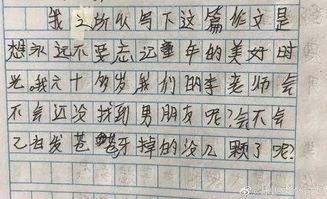 我之所以写下这篇作文是
想永远不要忘记童年的美好时
光。我六十的岁我们的李老师会
不会还没找到男朋友呢?会不会
已白发苍苍牙掉的没几颗了呢?